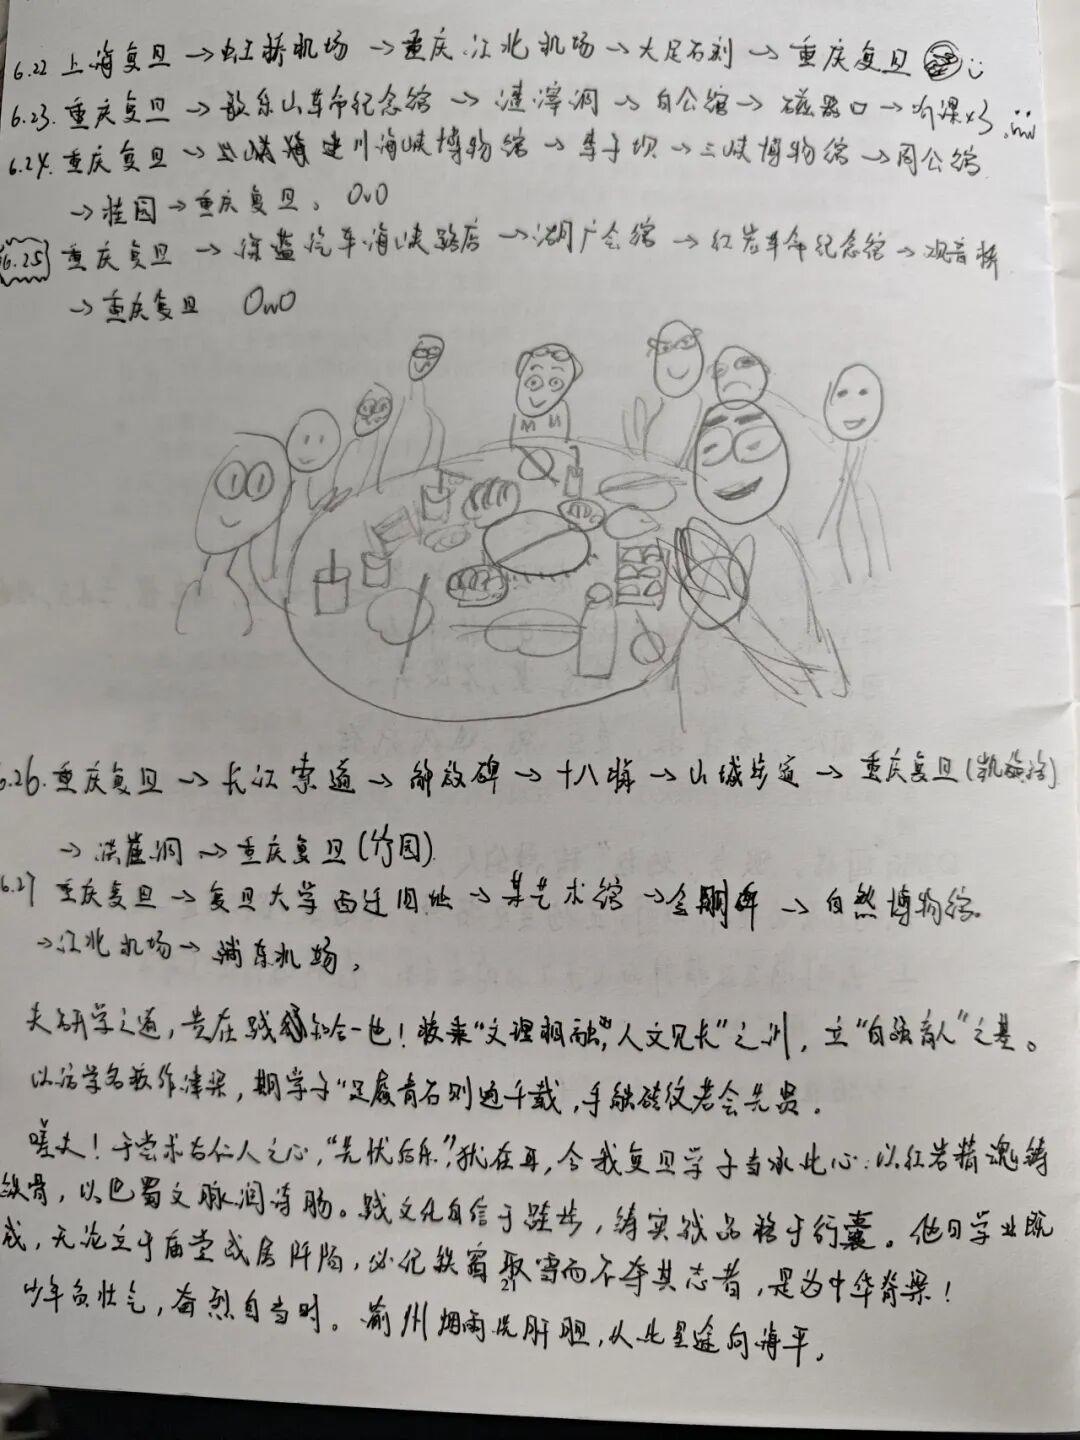 6.22 上海复旦→虹桥机场→重庆江北机场→大足石刻→重庆复旦
6.23.重庆复旦→歌乐山革命纪念馆→渣滓洞→白公馆→磁器口→听课x3
6.24.重庆复旦→建川海峡博物馆→李子坝→三峡博物馆→周公馆
→桂园→重庆复旦。OvO
6.25 重庆复旦→深蓝汽车海峡路店→湖广会馆→红岩革命纪念馆→观音桥
→重庆复旦 OwO
6.26.重庆复旦→长江索道→解放碑→十八梯→山城步道→重庆复旦(凯旋路)
→洪崖洞→重庆复旦(竹园)
6.27 重庆复旦→复旦大学西迁旧址→某艺术馆→金刚碑→自然博物馆。
→江北机场→浦东机场。
夫研学之道，贵在践知合一也！校秉“文理相融，人文见长”之训，立“自强育人”之基。
以活学名教作津梁，期学子“足履青石则通千载，手触砖纹若会先贤。
嗟夫！予尝求古仁人之心，“先忧后乐”，犹在耳，今我复旦学子当承此心：以红岩精魂铸
铁骨，以巴蜀文脉润诗肠。践文化自信于跬步，铸实践品格于行囊。他日学业既
成，无论立于庙堂或居阡陌，必记铁窗聚雪而不夺其志者，是为中华脊梁！
少年负壮气，奋烈自当时。渝州烟雨洗肝胆，从此星途向海平。